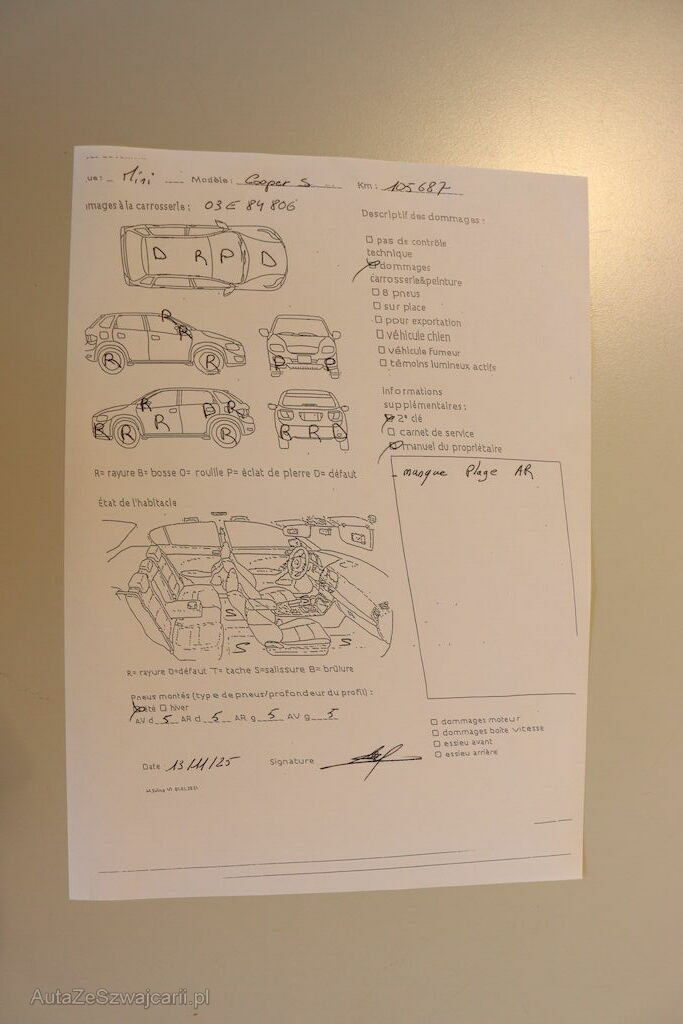 ue: Mini Modèle: Cooper S Km: 105687
images à la carrosserie: 03E 84 806
D R P D
R R R R
P P
R R R R B R R
B R R
R= rayure B= bosse O= rouille P= éclat de pierre D= défaut
État de l'habitacle
S S S S
R= rayure D=défaut T= tache S=salissure B= brûlure
Pneus montés (type de pneus/profondeur du profil) :
été hiver
AV d 5 AR d 5 AR g 5 AV g 5
Date: 13/11/25 Signature
Descriptif des dommages :
pas de contrôle
technique
dommages
carrosserie&peinture
8 pneus
sur place
pour exportation
véhicule chien
véhicule fumeur
témoins lumineux actifs
Informations
supplémentaires :
2e clé
carnet de service
manuel du propriétaire
- manque Plage AR
dommages moteur
dommages boîte vitesse
essieu avant
essieu arrière
AutaZeSzwajcarii.pl